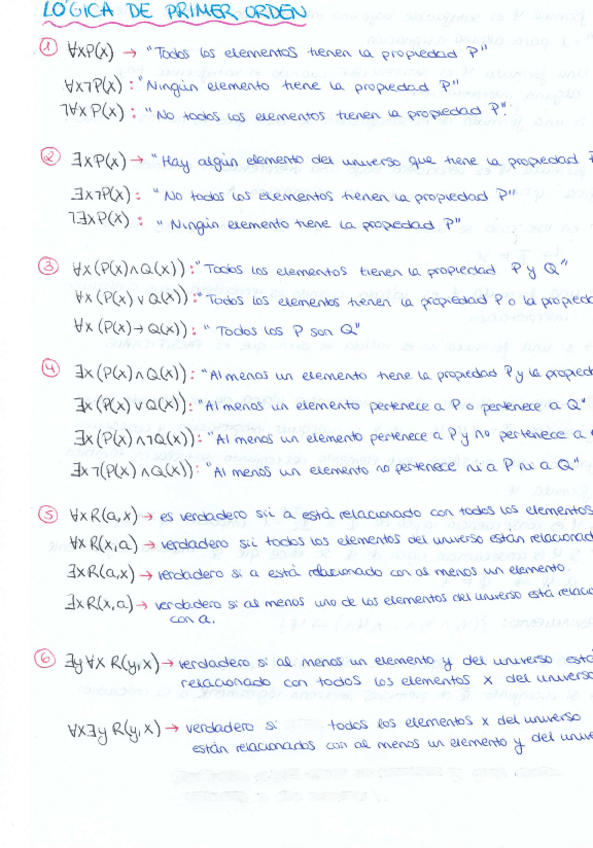 LÓGICA DE PRIMER ORDEN
① ∀xP(x) → "Todos los elementos tienen la propiedad P"
∀x¬P(x) : "Ningún elemento tiene la propiedad P"
¬∀x P(x) : "No todos los elementos tienen la propiedad P".
② ∃xP(x) → "Hay algún elemento del universo que tiene la propiedad
∃x¬P(x) : "No todos los elementos tienen la propiedad P"
¬∃xP(x) : "Ningún elemento tiene la propiedad P"
③ ∀x (P(x)∧Q(x)) : "Todos los elementos tienen la propiedad P y Q"
∀x (P(x) ∨ Q(x)) : "Todos los elementos tienen la propiedad P o la
∀x (P(x) → Q(x)) : "Todos los P son Q"
④ ∃x (P(x)∧Q(x)) : "Al menos un elemento tiene la propiedad P y la
∃x (P(x) ∨ Q(x)) : "Al menos un elemento pertenece a P o pertenece a Q"
∃x (P(x) ∧¬Q(x)) : "Al menos un elemento pertenece a P y no pertenece a
∃x ¬(P(x) ∧Q(x)) : "Al menos un elemento no pertenece ni a P ni a Q"
⑤ ∀x R(a,x) → es verdadero sii a está relacionado con todos los elementos
∀x R(x,a) → verdadero sii todos los elementos del universo están
∃x R(a,x) → verdadero si a está relacionado con al menos un elemento.
∃x R(x,a) → verdadero si al menos uno de los elementos del universo está
con a.
⑥ ∃y ∀x R(y,x) → verdadero si al menos un elemento y del universo está
relacionado con todos los elementos x del universo
∀x∃y R(y,x) → verdadero si todos los elementos x del universo
están relacionados con al menos un elemento y del